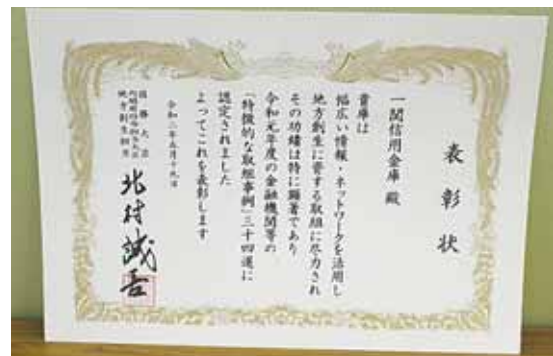 表彰状
一関信用金庫 殿
貴庫は
幅広い情報・ネットワークを活用し
地方創生に資する取組に尽力され
その功績は特に顕著であり
令和元年度の金融機関等の
「特徴的な取組事例」三十四選に
認定されました
よってこれを表彰します
令和二年五月十九日
国務大臣
内閣府特命担当大臣
地方創生担当
北村誠吾